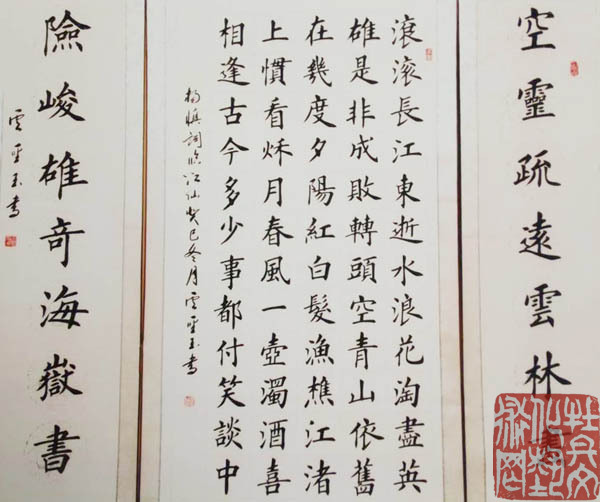 空靈疏遠雲林
滾滾長江東逝水浪花淘盡英
雄是非成敗轉頭空青山依舊
在幾度夕陽紅白髮漁樵江渚
上慣看秌月春風一壺濁酒喜
相逢古今多少事都付笑談中
楊慎詞臨江仙癸巳冬月雲玉書
險峻雄奇海嶽書
雲玉書